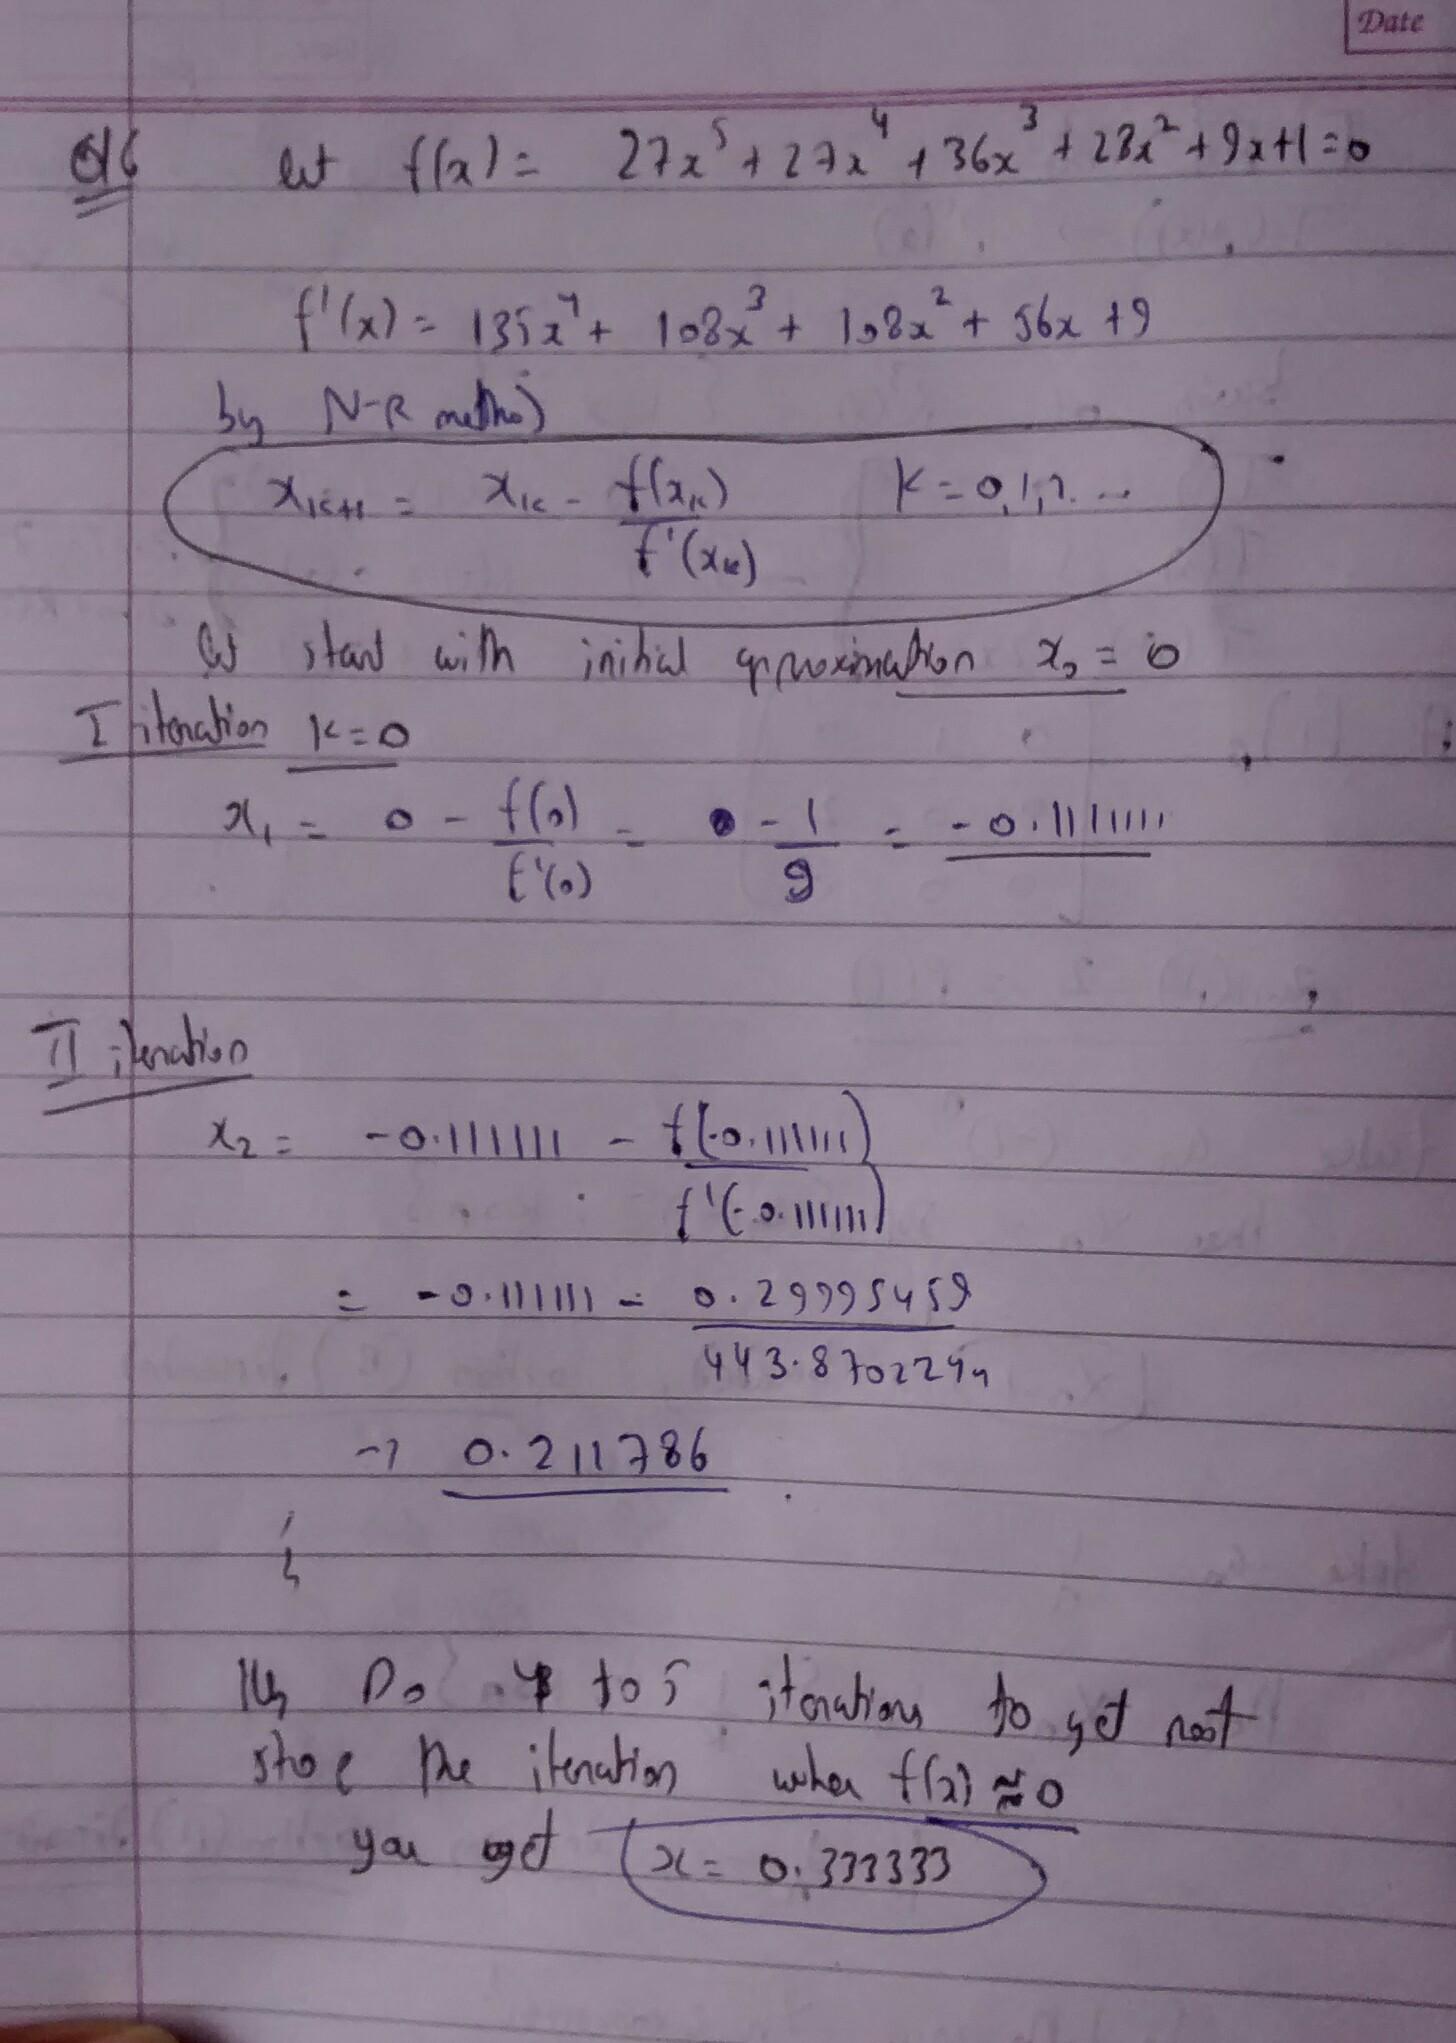 Date
Q16 let f(x) = 27x⁵ + 27x⁴ + 36x³ + 28x² + 9x + 1 = 0
f'(x) = 135x⁴ + 108x³ + 108x² + 56x + 9
by N-R method
xₖ₊₁ = xₖ - f(xₖ) / f'(xₖ) K = 0, 1, 2 ...
let start with initial approximation x₀ = 0
I iteration K = 0
x₁ = 0 - f(0) / f'(0) = 0 - 1 / 9 = -0.1111111
II iteration
x₂ = -0.111111 - f(-0.111111) / f'(-0.111111)
= -0.111111 - 0.29995459 / 443.8702244
→ 0.211786
Do to 5 iterations to get root
stop the iteration when f(x) ≈ 0
you get x = 0.333333